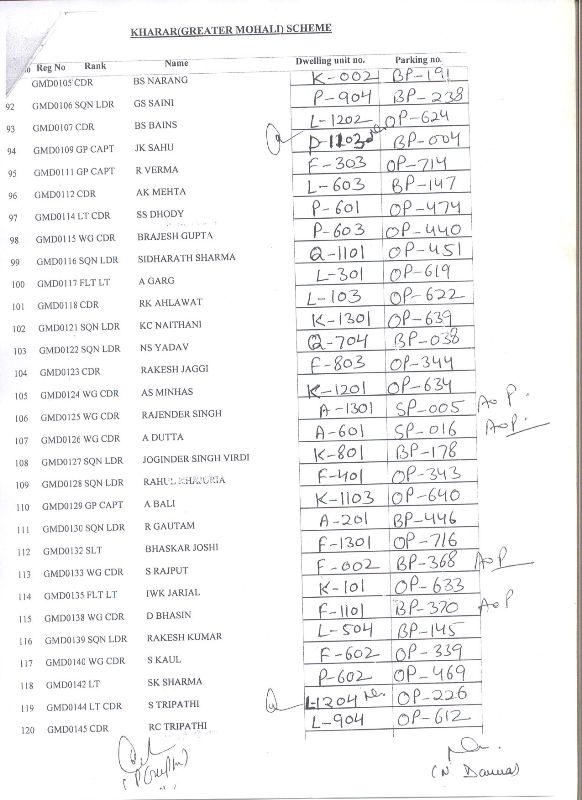 KHARAR(GREATER MOHALI) SCHEME
No Reg No Rank Name Dwelling unit no. Parking no.
GMD0105 CDR BS NARANG K-002 BP-191
92 GMD0106 SQN LDR GS SAINI P-904 BP-238
93 GMD0107 CDR BS BAINS L-1202 OP-624
94 GMD0109 GP CAPT JK SAHU D-1103 BP-004
95 GMD0111 GP CAPT R VERMA F-303 OP-714
96 GMD0112 CDR AK MEHTA L-603 BP-147
97 GMD0114 LT CDR SS DHODY P-601 OP-474
98 GMD0115 WG CDR BRAJESH GUPTA P-603 OP-440
99 GMD0116 SQN LDR SIDHARATH SHARMA Q-1101 OP-451
100 GMD0117 FLT LT A GARG L-301 OP-619
101 GMD0118 CDR RK AHLAWAT L-103 OP-622
102 GMD0121 SQN LDR KC NAITHANI K-1301 OP-639
103 GMD0122 SQN LDR NS YADAV Q-704 BP-038
104 GMD0123 CDR RAKESH JAGGI F-803 OP-344
105 GMD0124 WG CDR AS MINHAS K-1201 OP-634
106 GMD0125 WG CDR RAJENDER SINGH A-1301 SP-005 AOP.
107 GMD0126 WG CDR A DUTTA A-601 SP-016 AOP.
108 GMD0127 SQN LDR JOGINDER SINGH VIRDI K-801 BP-178
109 GMD0128 SQN LDR RAHUL KHAJURIA F-401 OP-343
110 GMD0129 GP CAPT A BALI K-1103 OP-640
111 GMD0130 SQN LDR R GAUTAM A-201 BP-446
112 GMD0132 SLT BHASKAR JOSHI F-1301 OP-716
113 GMD0133 WG CDR S RAJPUT F-002 BP-368 AOP
114 GMD0135 FLT LT IWK JARIAL K-101 OP-633
115 GMD0138 WG CDR D BHASIN F-1101 BP-370 AOP
116 GMD0139 SQN LDR RAKESH KUMAR L-504 BP-145
117 GMD0140 WG CDR S KAUL F-602 OP-339
118 GMD0142 LT SK SHARMA P-602 OP-469
119 GMD0144 LT CDR S TRIPATHI L-1204 OP-226
120 GMD0145 CDR RC TRIPATHI L-904 OP-612